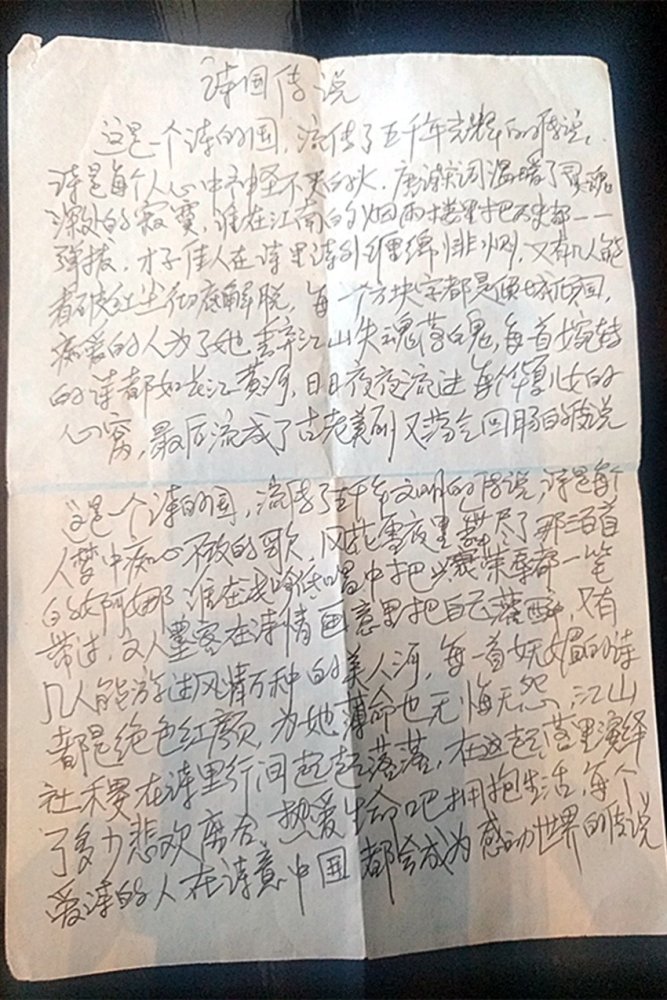 诗国传说
这是一个诗的国，流传了五千年光辉的传说，
诗是每个人心中神圣不灭的火．唐诗宋词温暖了灵魂
深处的寂寞，谁在江南的烟雨楼里把历史都一一
弹拨．才子佳人在诗里诗外缠绵悱恻，又有几人能
看破红尘彻底解脱，每一个方块字都是倾城倾国，
痴爱的人为了她弃江山失魂落魄，每首婉转
的诗都如长江黄河，日日夜夜流进每个华夏儿女的
心窝，最后流成了古老美丽又荡气回肠的传说
这是一个诗的国，流传了五千年文明的传说，诗是每个
人梦中痴心不改的歌，风花雪夜里舞尽了那洒脱
的婀娜，谁在浅吟低唱中把兴衰荣辱都一笔
带过，文人墨客在诗情画意里把自己灌醉，又有
几人能游过风情万种的美人河，每一首妩媚的诗
都是绝色红颜，为她薄命也无悔无怨，江山
社稷在诗里行间起起落落，在这起落里演绎
了多少悲欢离合，热爱生命吧拥抱生活，每个
爱诗的人在诗意中国都会成为感动世界的传说